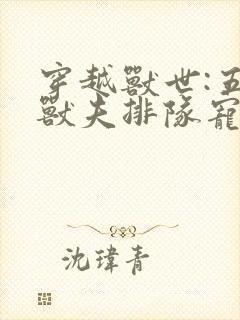 穿越獸世:五
獸夫排隊寵
沈瑋青